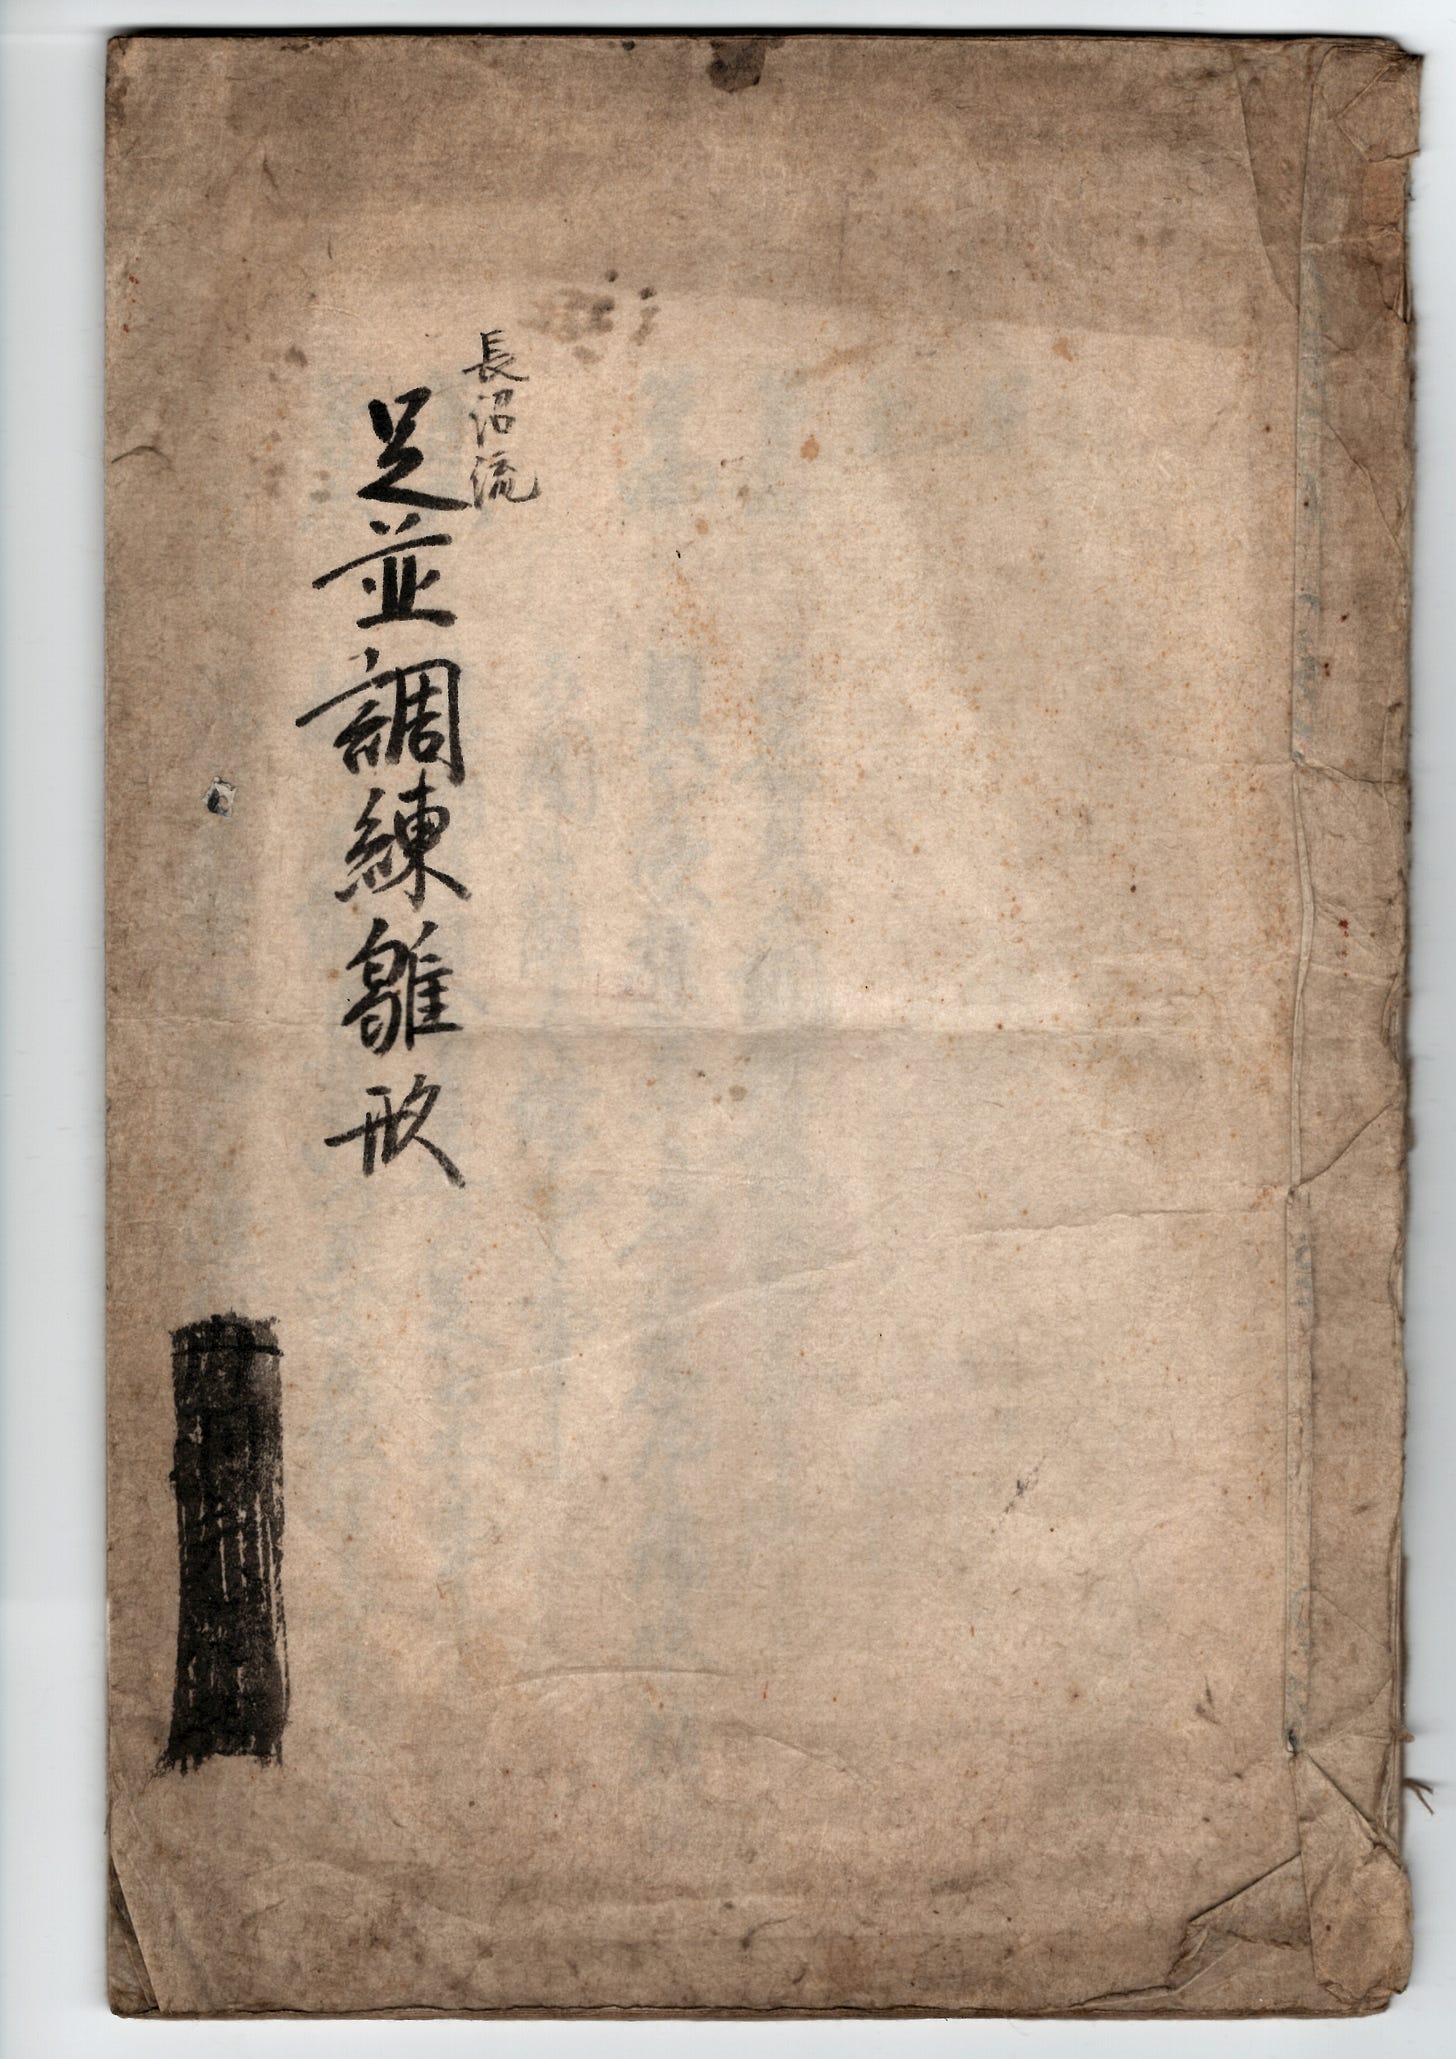 長沼流
足並調練雛形